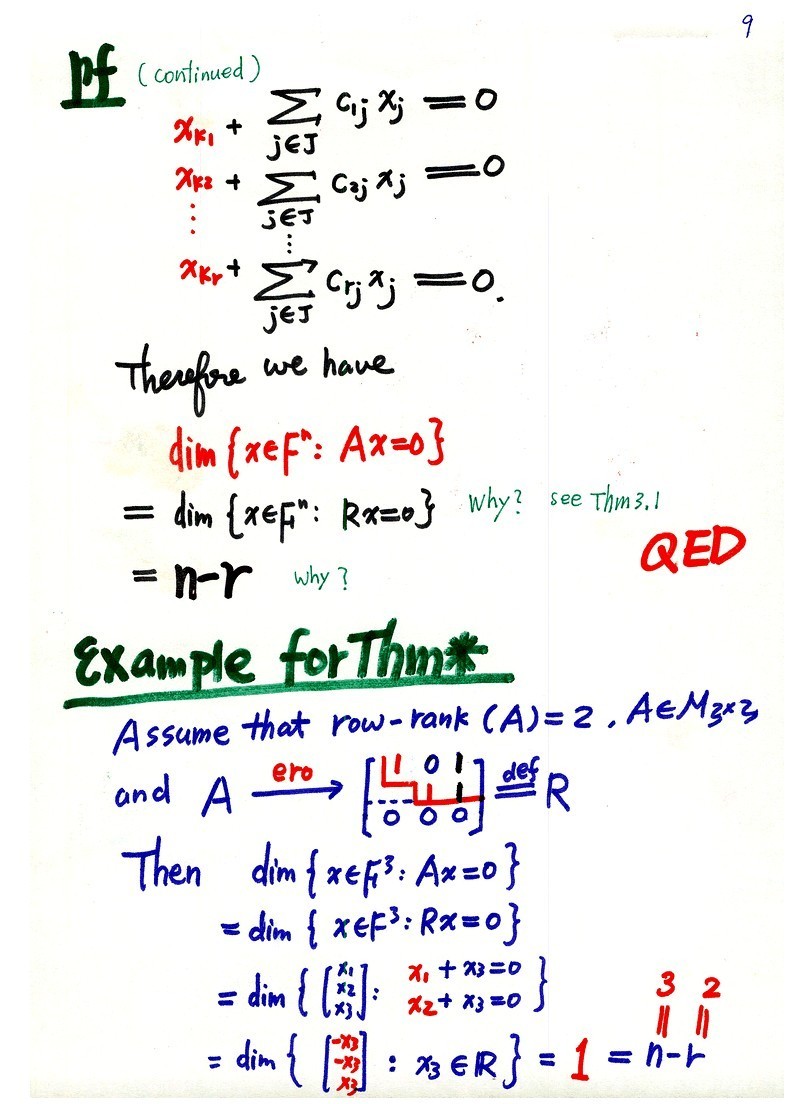 9
pf (continued)
x_{k1} + ∑_{j∈J} c_{1j} x_j = 0
x_{k2} + ∑_{j∈J} c_{2j} x_j = 0
⋮ ⋮
x_{kr} + ∑_{j∈J} c_{rj} x_j = 0.
Therefore we have
dim {x∈F^n : Ax=0}
= dim {x∈F^n : Rx=0} Why? see Thm 3.1
QED
= n-r why?
Example for Thm*
Assume that row-rank (A) = 2, A∈M_{3×3}
and A ero→ [1 0 1; 1 1; 0 0 0] def= R
Then dim {x∈F^3 : Ax=0}
= dim { x∈F^3 : Rx=0}
= dim { [x_1 x_2 x_3] : x_1 + x_3 = 0
x_2 + x_3 = 0 }
3 2
= dim { [-x_3 -x_3 x_3] : x_3 ∈ R } = 1 = n-r